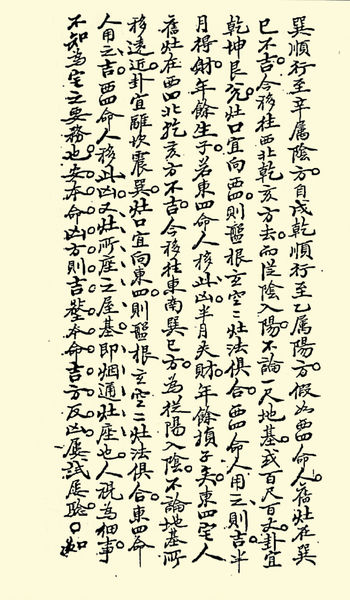 巽順行至辛属陰方自戌乾順行至乙属陽方假如西四命人舊灶在巽
巳不吉今移在西北乾亥方去而從陰入陽不論一尺地基或百尺百丈卦宜
乾坤艮兌灶口宜向西四則盤根玄空二灶法俱合西四命人用之則吉半
月得財年餘生子若東四命人移此凶半月失財年餘損子矣東四宅人
舊灶在西四北乾亥方不吉今移在東南巽巳方為從陽入陰不論地基所
移遠近卦宜離坎震巽灶口宜向東四則盤根玄空二灶法俱合東四命
人用之吉西四命人移此凶又灶所座之屋基即烟通灶座也人視為細事
不知為宅之要務也安本命凶方則吉塟本命吉方反凶屢試屢驗